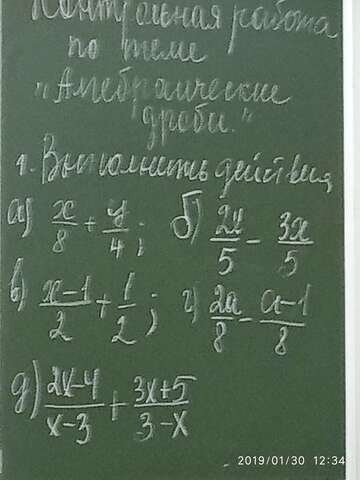 Контрольная работа
по теме
"Алгебраические
дроби."
1. Выполнить действия
а) x/8 + y/4; б) 2x/5 - 3x/5
в) x-1/2 + 1/2; г) 2a/8 - a-1/8
д) 2x-4/x-3 + 3x+5/3-x
2019/01/30 12:34